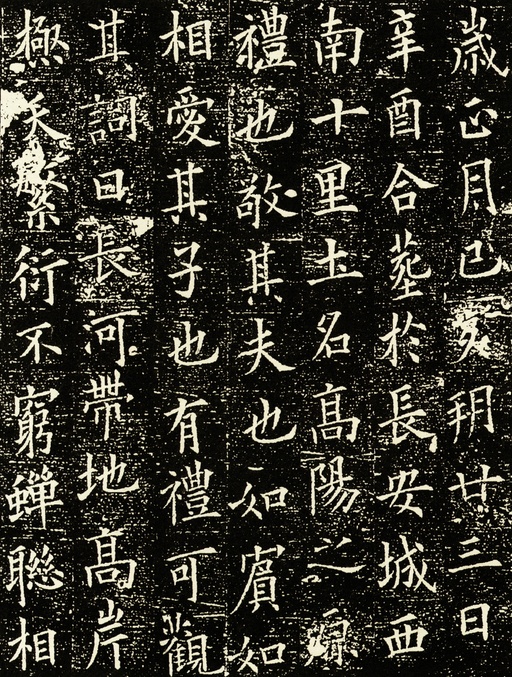 歲正月己亥朔廿三日
辛酉合塟於長安城西
南十里土名髙陽之原
禮也敬其夫也如賓如
相愛其子也有禮可觀
其詞曰長河帶地髙岸
極天繁衍不窮蟬聯相